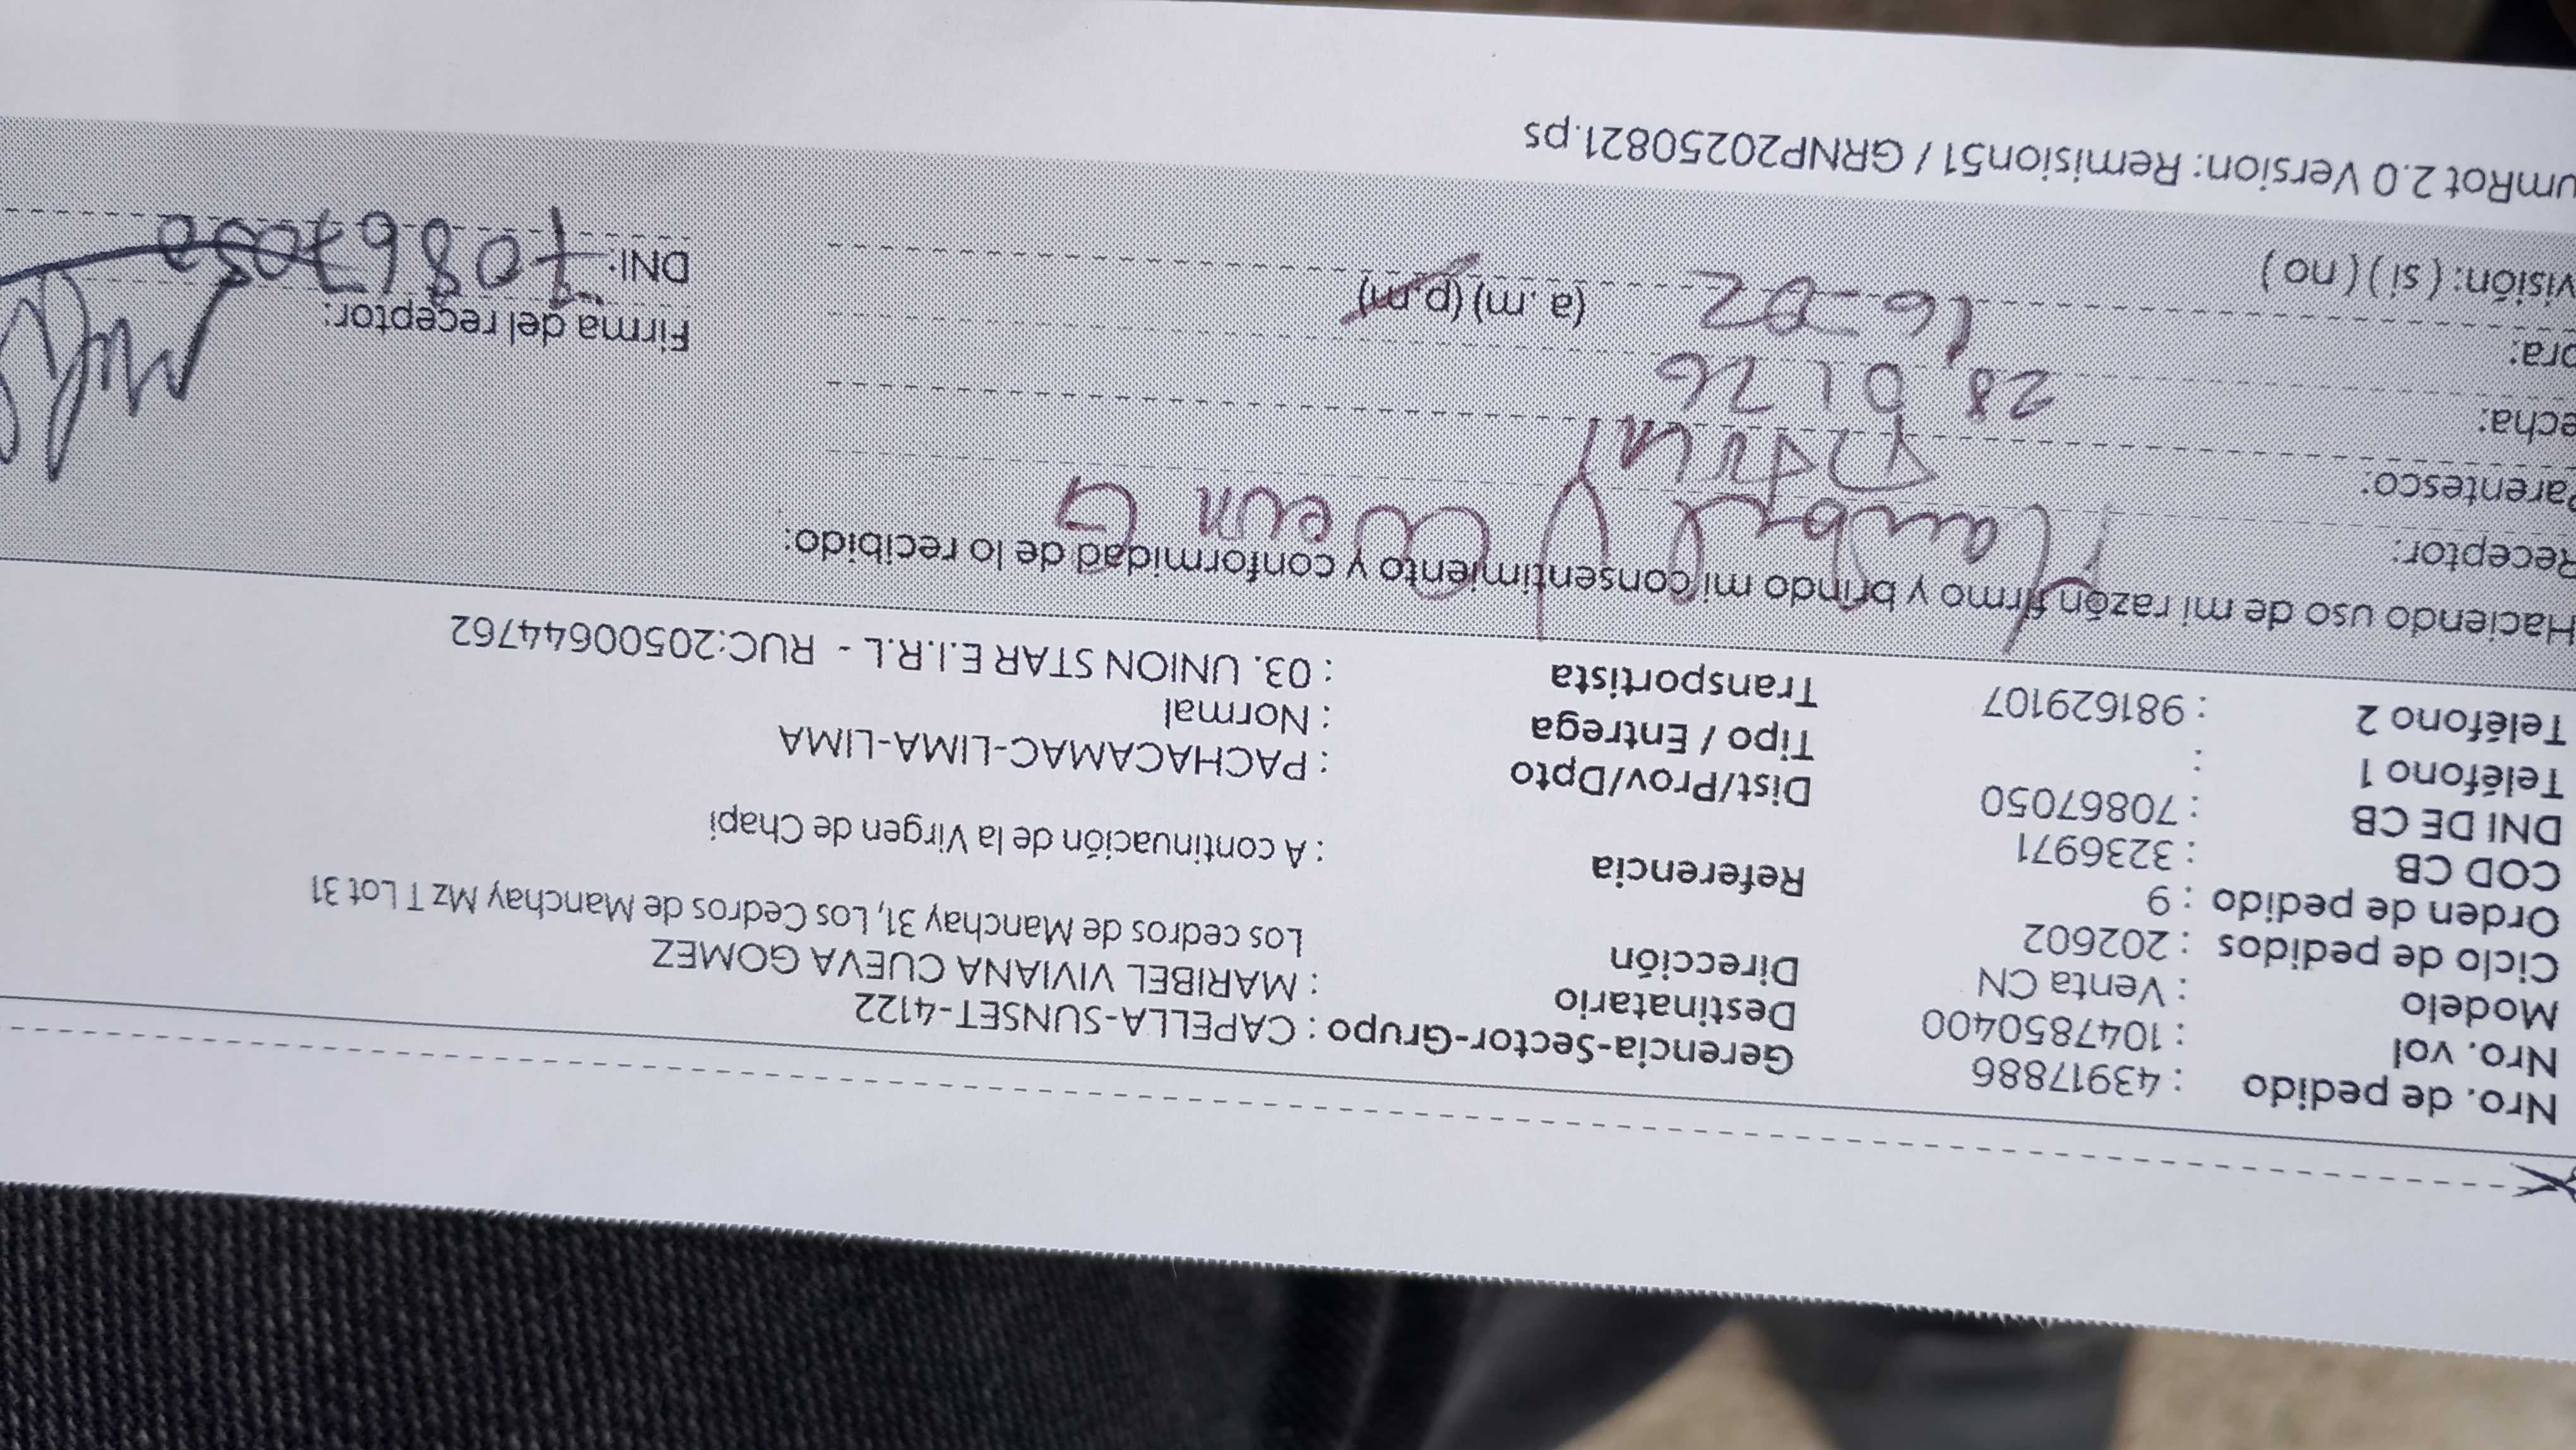 Nro. de pedido : 43917886 Gerencia-Sector-Grupo : CAPELLA-SUNSET-4122
Nro. vol : 1047850400 Destinatario : MARIBEL VIVIANA CUEVA GOMEZ
Modelo : Venta CN Dirección Los cedros de Manchay 31, Los Cedros de Manchay Mz T Lot 31
Ciclo de pedidos : 202602
Orden de pedido : 9 Referencia : A continuación de la Virgen de Chapi
COD CB : 3236971
DNI DE CB : 70867050 Dist/Prov/Dpto : PACHACAMAC-LIMA-LIMA
Teléfono 1 : Tipo / Entrega : Normal
Teléfono 2 : 981629107 Transportista : 03. UNION STAR E.I.R.L - RUC:20500644762
Haciendo uso de mi razón firmo y brindo mi consentimiento y conformidad de lo recibido:
Receptor: Maribel V Cueva G
Parentesco:
echa: 28 01 26
ora: 16-02 (a.m) (p.m) Firma del receptor:
visión: ( si ) ( no ) DNI: 70867050
umRot 2.0 Version: Remision51 / GRNP20250821.ps